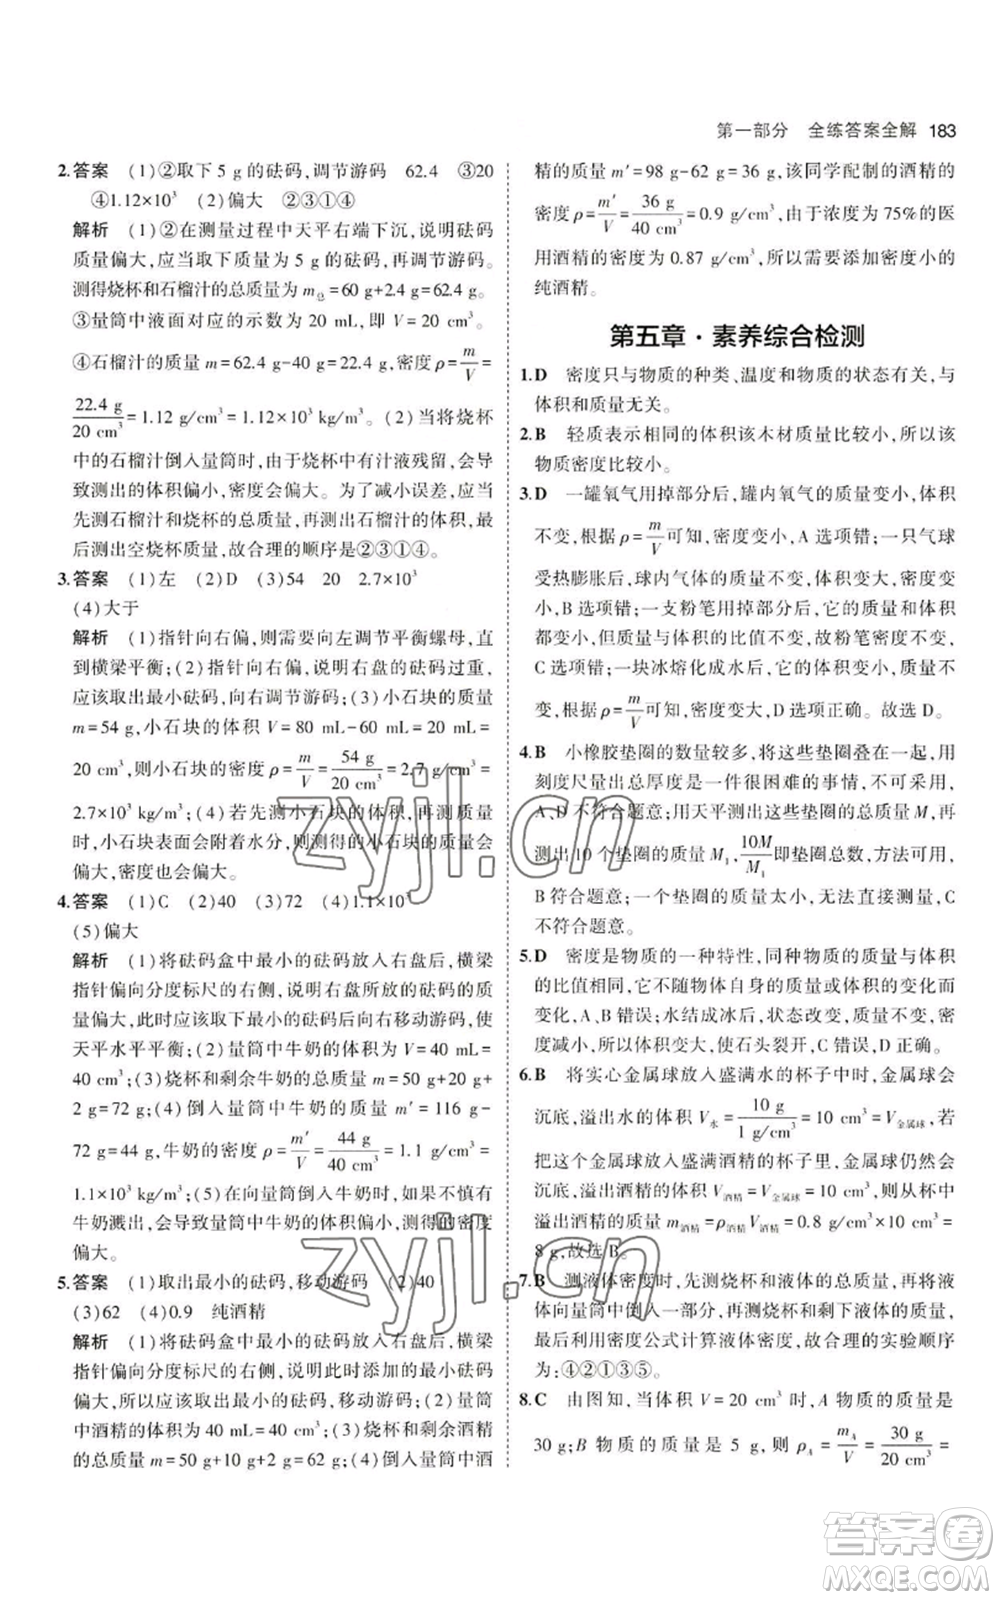 第一部分 全练答案全解 183
2.答案 (1)②取下 5 g 的砝码,调节游码 62.4 ③20
④1.12×10³ (2)偏大 ②③①④
解析 (1)②在测量过程中天平右端下沉,说明砝码
质量偏大,应当取下质量为 5 g 的砝码,再调节游码。
测得烧杯和石榴汁的总质量为 m总=60 g+2.4 g=62.4 g。
③量筒中液面对应的示数为 20 mL,即 V=20 cm³。
④石榴汁的质量 m=62.4 g-40 g=22.4 g,密度 ρ=m/V=
22.4 g/20 cm³=1.12 g/cm³=1.12×10³ kg/m³。(2)当将烧杯
中的石榴汁倒入量筒时,由于烧杯中有汁液残留,会导
致测出的体积偏小,密度会偏大。为了减小误差,应当
先测石榴汁和烧杯的总质量,再测出石榴汁的体积,最
后测出空烧杯质量,故合理的顺序是②③①④。
3.答案 (1)左 (2)D (3)54 20 2.7×10³
(4)大于
解析 (1)指针向右偏,则需要向左调节平衡螺母,直
到横梁平衡;(2)指针向右偏,说明右盘的砝码过重,
应该取出最小砝码,向右调节游码;(3)小石块的质量
m=54 g,小石块的体积 V=80 mL-60 mL=20 mL=
20 cm³,则小石块的密度 ρ=m/V=54 g/20 cm³=2.7 g/cm³=
2.7×10³ kg/m³;(4)若先测小石块的体积,再测质量
时,小石块表面会附着水分,则测得的小石块质量会
偏大,密度也会偏大。
4.答案 (1)C (2)40 (3)72 (4)1.1×10³
(5)偏大
解析 (1)将砝码盒中最小的砝码放入右盘后,横梁
指针偏向分度标尺的右侧,说明右盘所放的砝码的质
量偏大,此时应该取下最小的砝码后向右移动游码,使
天平水平平衡;(2)量筒中牛奶的体积为 V=40 mL=
40 cm³;(3)烧杯和剩余牛奶的总质量 m=50 g+20 g+
2 g=72 g;(4)倒入量筒中牛奶的质量 m′=116 g-
72 g=44 g,牛奶的密度 ρ=m′/V=44 g/40 cm³=1.1 g/cm³=
1.1×10³ kg/m³;(5)在向量筒倒入牛奶时,如果不慎有
牛奶溅出,会导致量筒中牛奶的体积偏小,测得的密度
偏大。
5.答案 (1)取出最小的砝码,移动游码 (2)40
(3)62 (4)0.9 纯酒精
解析 (1)将砝码盒中最小的砝码放入右盘后,横梁
指针偏向分度标尺的右侧,说明此时添加的最小砝码
偏大,所以应该取出最小的砝码,移动游码;(2)量筒
中酒精的体积为 40 mL=40 cm³;(3)烧杯和剩余酒精
的总质量 m=50 g+10 g+2 g=62 g;(4)倒入量筒中酒
精的质量 m′=98 g-62 g=36 g,该同学配制的酒精的
密度 ρ=m′/V=36 g/40 cm³=0.9 g/cm³,由于浓度为 75%的医
用酒精的密度为 0.87 g/cm³,所以需要加密度小的
纯酒精。
第五章·素养综合检测
1.D 密度只与物质的种类、温度和物质的状态有关,与
体积和质量无关。
2.B 轻质表示相同的体积该木材质量比较小,所以该
物质密度比较小。
3.D 一罐氧气用掉部分后,罐内氧气的质量变小,体积
不变,根据 ρ=m/V可知,密度变小,A 选项错;一只气球
受热膨胀后,球内气体的质量不变,体积变大,密度变
小,B 选项错;一支粉笔用掉部分后,它的质量和体积
都变小,但质量与体积的比值不变,故物质密度不变,
C 选项错;一块冰熔化成水后,它的体积变小,质量不
变,根据 ρ=m/V可知,密度变大,D 选项正确。故选 D。
4.B 小橡胶垫圈的数量较多,将这些垫圈叠在一起,用
刻度尺量出总厚度是一件很困难的事情,不可采用,
A、D 不符合题意;用天平测出这些垫圈的总质量 M,再
测出 10 个垫圈的质量 M₁,10M/M₁即垫圈总数,方法可用,
B 符合题意;一个垫圈的质量太小,无法直接测量,C
不符合题意。
5.D 密度是物质的一种特性,同种物质的质量与体积
的比值是不变的,不随物体自身的质量或体积的变化而
变化,A、B 错误;水结成冰后,状态改变,质量不变,密
度减小,所以体积变大,使石头裂开,C 错误,D 正确。
6.B 将实心金属球放入盛满水的杯子中时,金属球会
沉底,溢出水的体积 V水=10 g/1 g/cm³=10 cm³=V金属球,若
把这个金属球放入盛满酒精的杯子里,金属球仍然会
沉底,溢出酒精的体积 V酒精=V金属球=10 cm³,则从杯中
溢出酒精的质量 m酒精=ρ酒精V酒精=0.8 g/cm³×10 cm³=
8 g,故选 B。
7.B 测液体密度时,先测烧杯和液体的总质量,将液
体向量筒中倒入一部分,再测烧杯和剩下液体的质量,
最后利用密度公式计算液体密度,故合理的实验顺序
为:④②①③⑤。
8.C 由图知,当体积 V=20 cm³ 时,A 物质的质量是
30 g;B 物质的质量是 5 g,则 ρA=mA/V=30 g/20 cm³=
zyjl.cn
zyjl.cn
答案圈
MXQE.COM